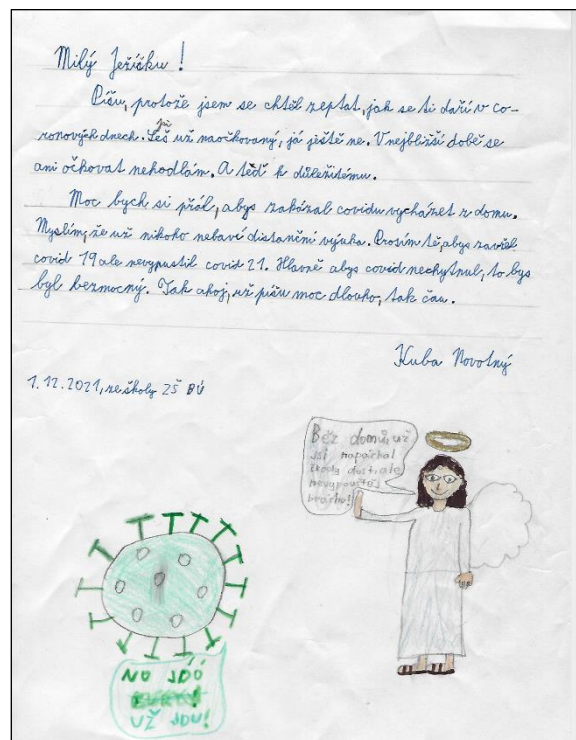 Milý Ježíčku!
Píšu, protože jsem se chtěl zeptat, jak se ti daří v co-
ronových dnech. Jsi už naočkovaný, já ještě ne. V nejbližší době se
ani očkovat nehodlám. A teď k důležitému.
Moc bych si přál, abys zakázal covidu vycházet z domu.
Myslím, že už nikoho nebaví distanční výuka. Prosím tě, abys zavřel
covid 19 ale nevypustil covid 21. Hlavně abys covid nechytnul, to bys
byl bezmocný. Tak ahoj, už píšu moc dlouho, tak čau.
Kuba Novotný
1.12.2021, ze školy ZŠ BÚ
Běž domů, už
jsi napáchal
škody dost, ale
nevypouštěj
bráchu!
NO JDÓ
UŽ JDU!